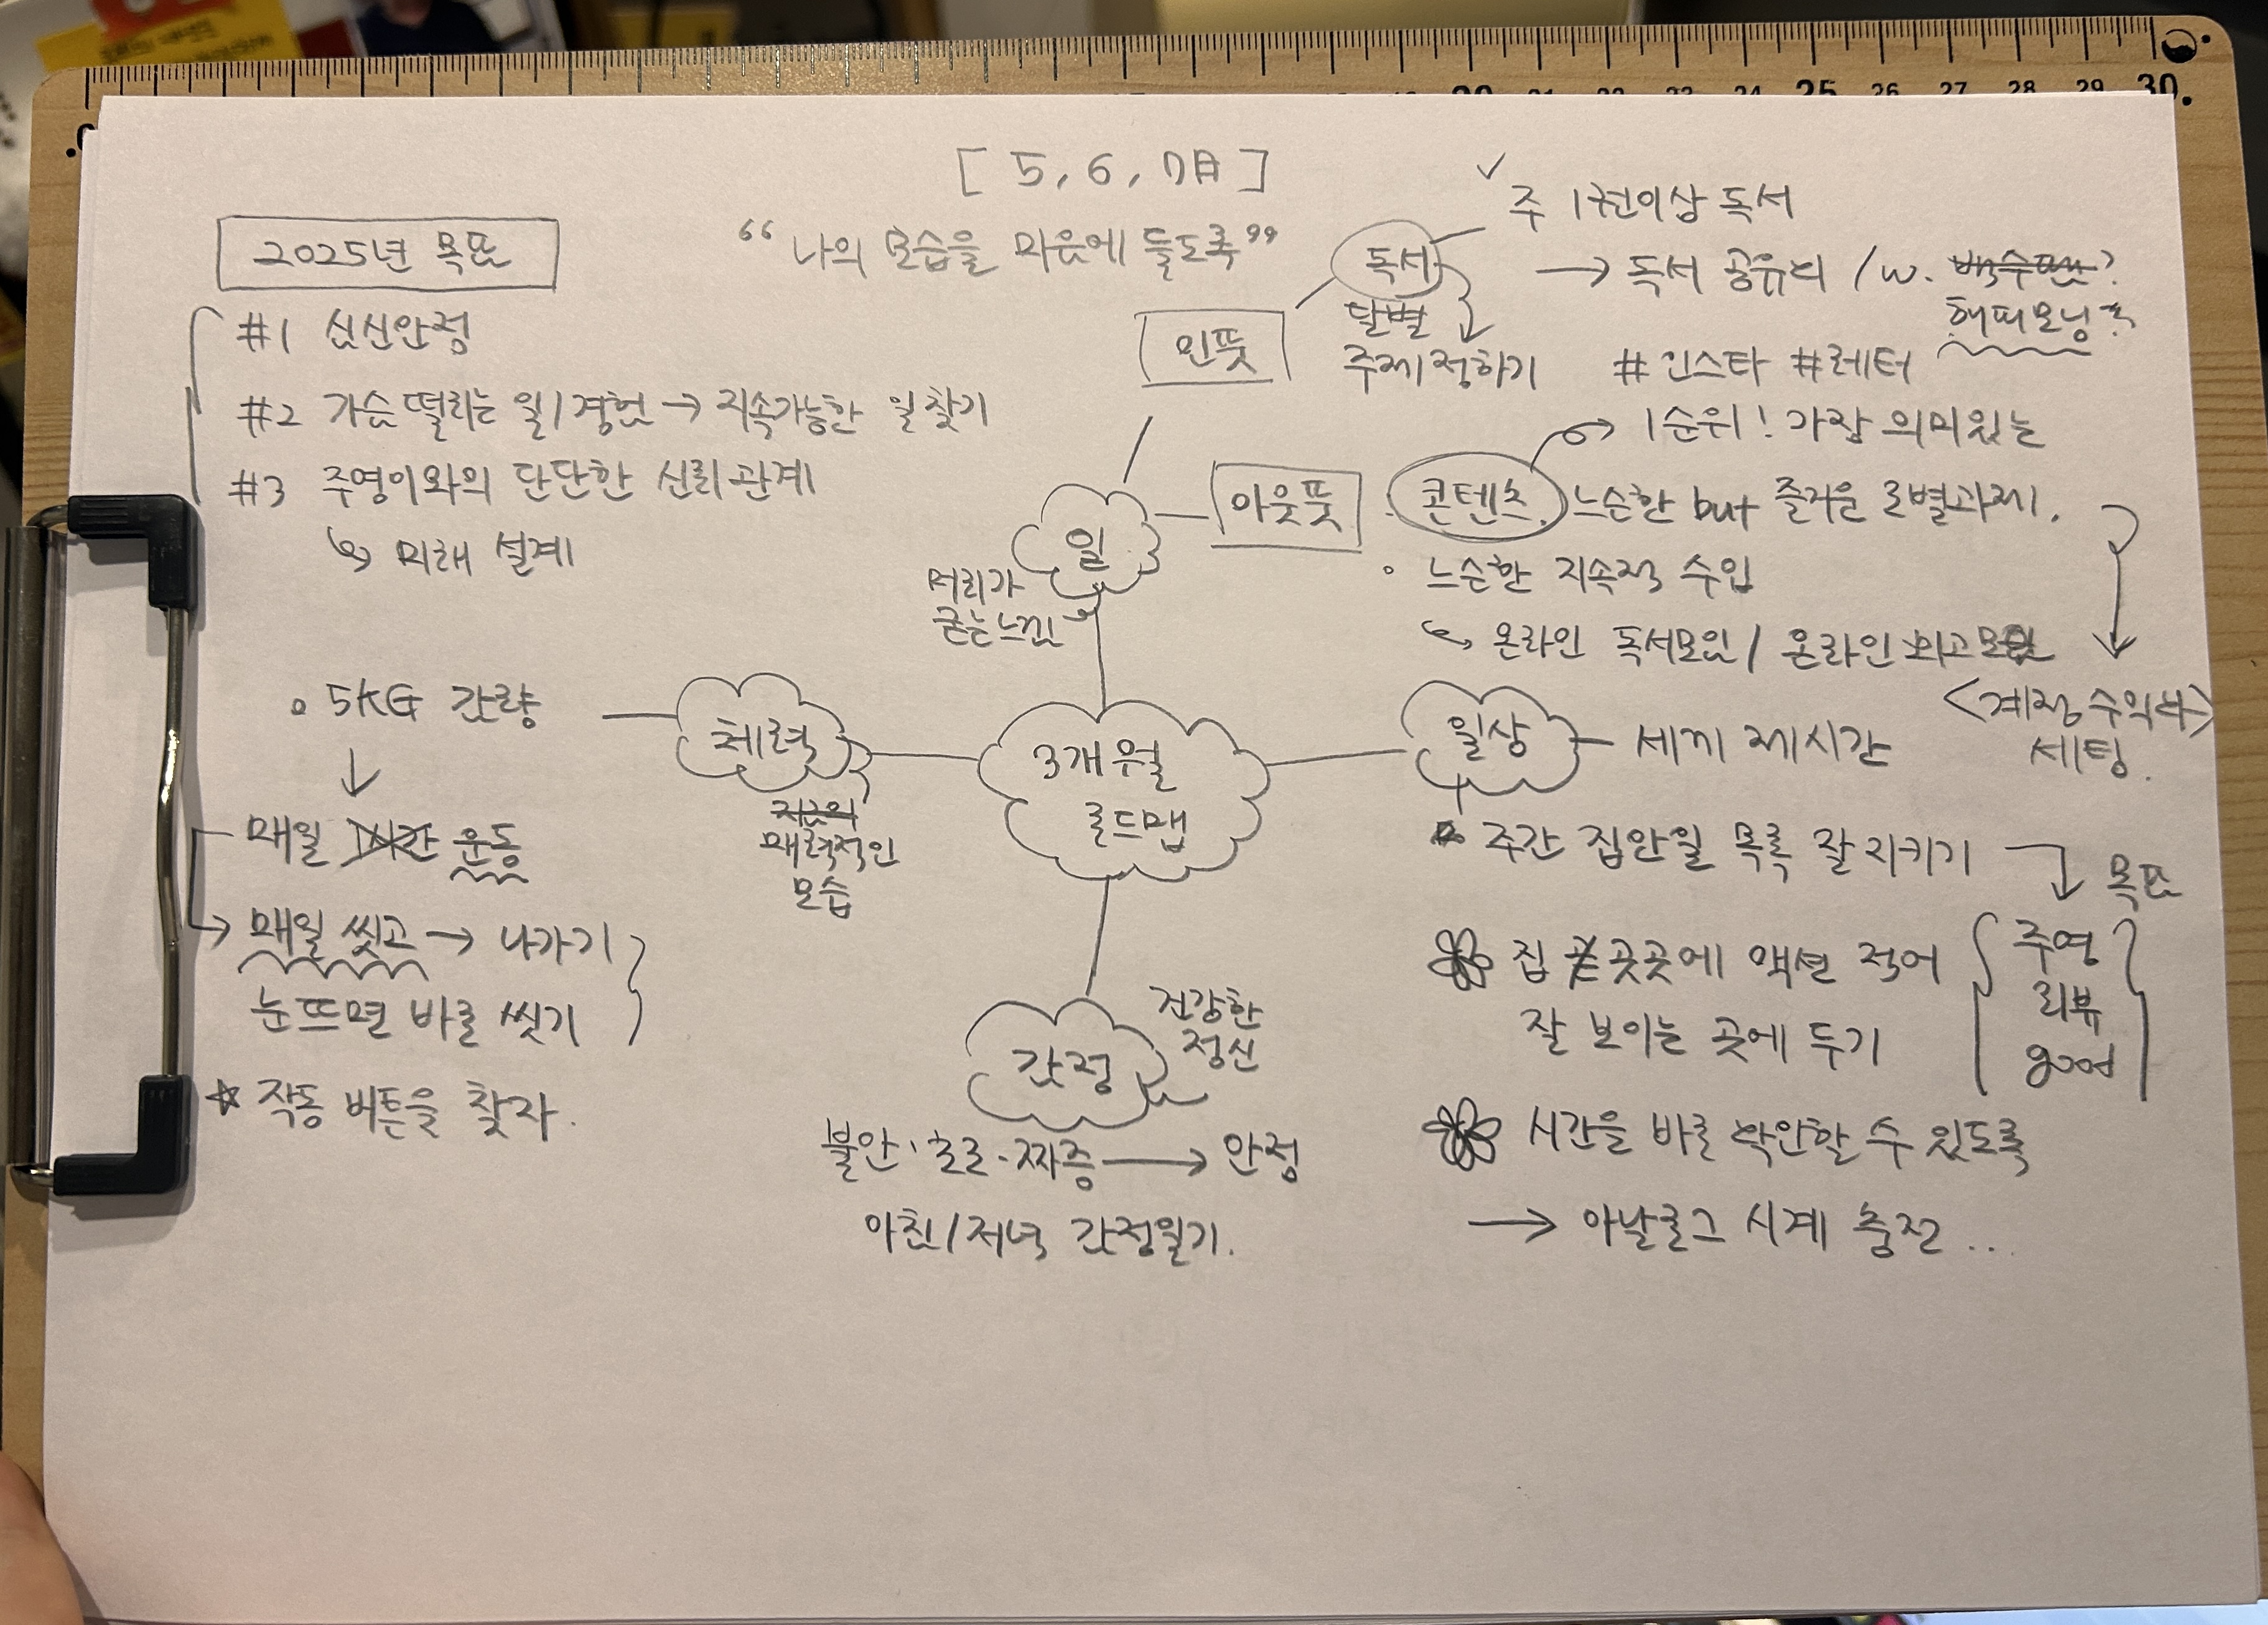 [ 5, 6, 7月 ]
“ 나의 모습을 마음에 들도록 ”
2025년 목표
#1 심신안정
#2 가슴 떨리는 일/경험 → 지속가능한 일 찾기
#3 주영이와의 단단한 신뢰관계
↳ 미래 설계
3개월
로드맵
일
머리가
굳는 느낌
인풋
독서
달별
주제 정하기
✓ 주 1권이상 독서
→ 독서 공유회 /w.
해피모닝?
#인스타 #레터
아웃풋
콘텐츠
→ 1순위! 가장 의미있는
느슨한 but 즐거운 조별과제.
• 느슨한 지속적 수입
↳ 온라인 독서모임 / 온라인 회고모임
<계정 수익화>
세팅.
체력
매력적인
모습
• 5KG 감량
↓
매일 운동
→ 매일 씻고 → 나가기
눈뜨면 바로 씻기
☆ 작동 버튼을 찾자.
일상
세끼 제시간
주간 집안일 목록 잘 지키기
목표
주영
리뷰
good
집 곳곳에 액션 적어
잘 보이는 곳에 두기
시간을 바로 확인할 수 있도록
→ 아날로그 시계 충전...
감정
건강한
정신
불안·초조·짜증 → 안정
아침/저녁 감정일기.
20 21 22 23 24 25 26 27 28 29 30.